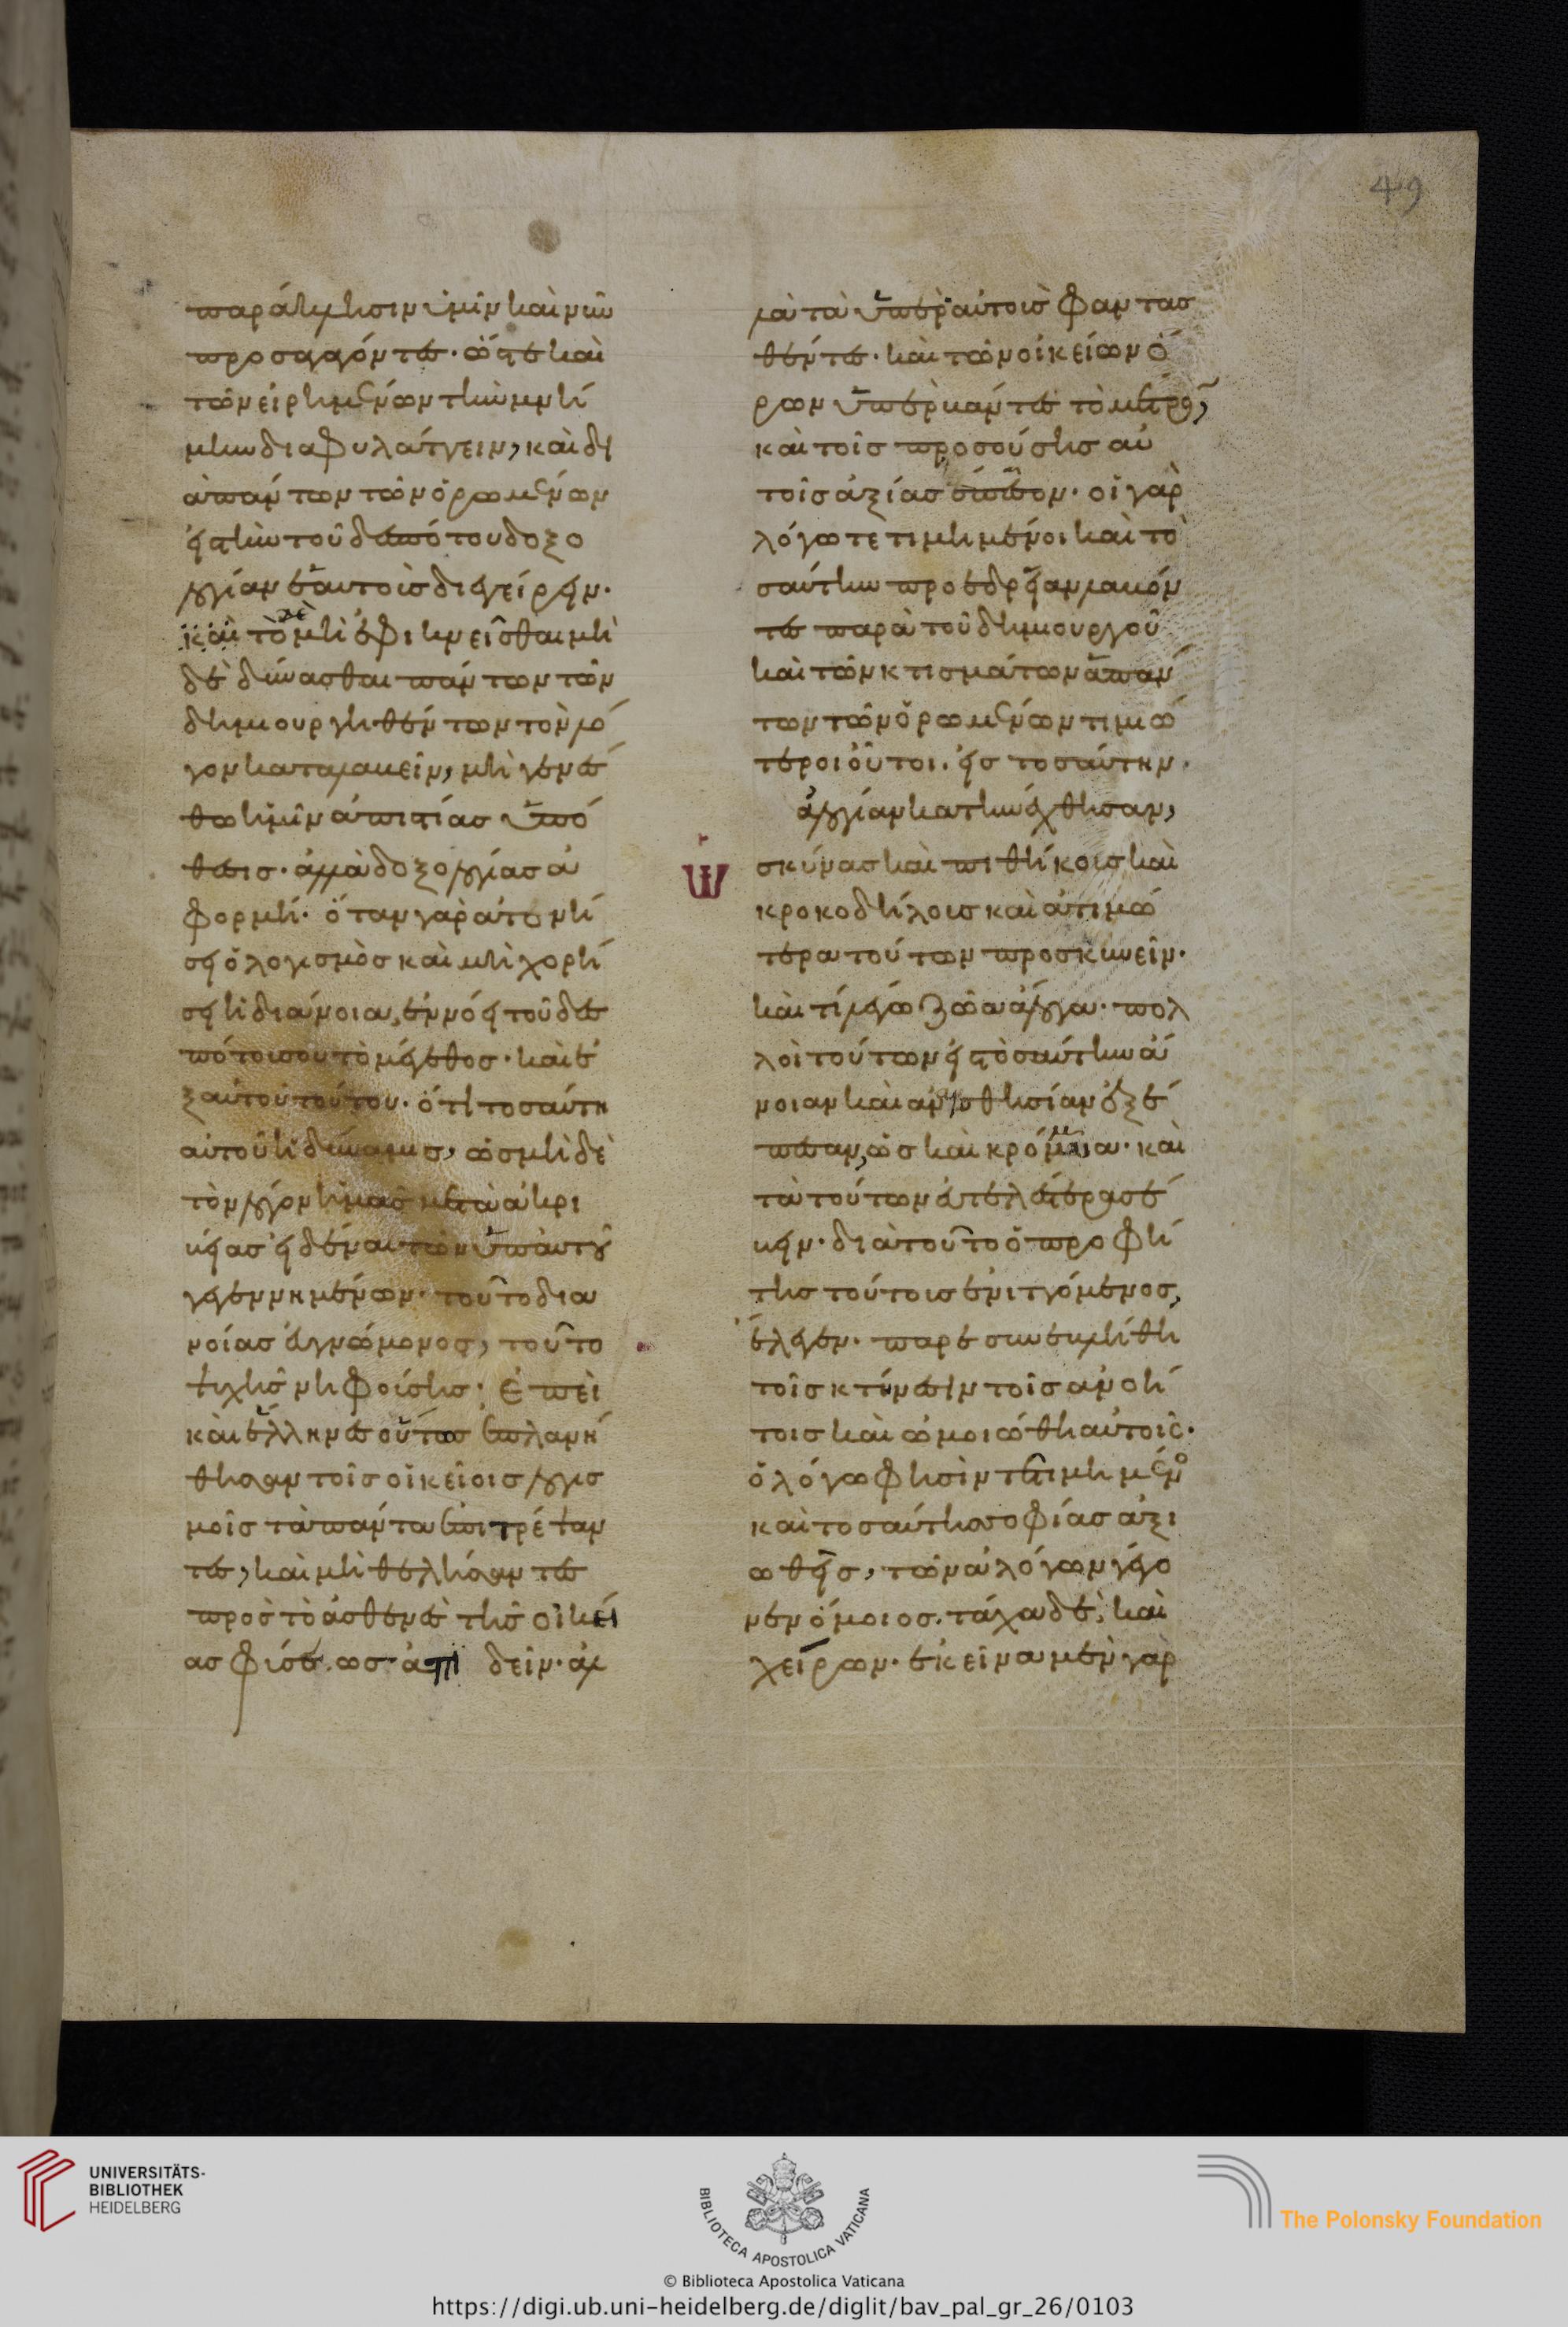 49
παραίνεσιν ὑμῖν καὶ νῦν
προσαγαγόντες. ὥστε καὶ
τῶν εἰρημένων τὴν μνή
μην διαφυλάττειν, καὶ δι
ἁπάντων τῶν ὁρωμένων
εἰς τὴν τοῦ δεσπότου δοξο
λογίαν ἑαυτοὺς διεγείρειν.
καὶ τὸ δὲ μὴ ἐφικνεῖσθαι μη
δὲ δύνασθαι πάντων τῶν
δημιουργηθέντων τὸν λό
γον καταλαβεῖν, μὴ γενέσ
θω ἡμῖν ἀπιστίας ὑπό
θεσις. ἀλλὰ δοξολογίας ἀ
φορμή. ὅταν γὰρ ἀτονή
σῃ ὁ λογισμὸς καὶ μὴ χωρή
σῃ ἡ διάνοια, ἐννόει τοῦ δεσ
πότου σου τὸ μέγεθος. καὶ ἐ
ξ αὐτοῦ τούτου. ὅτι τοσαύτη
αὐτοῦ ἡ δύναμις, ὡς μηδὲ
τὸν λόγον ἡμᾶς μετὰ ἀκρι
βείας εἰδέναι τῶν ὑπ' αὐτοῦ
γεγεννημένων. τοῦτο δια
νοίας εὐγνώμονος, τοῦτο
ψυχῆς νηφούσης. ἐπεὶ
καὶ ἕλληνες οὕτως ἐπλανή
θησαν τοῖς οἰκείοις λογισ
μοῖς τὰ πάντα ἐπιτρέψαν
τες, καὶ μὴ θελήσαντες
πρὸς τὸ ἀσθενὲς τῆς οἰκεί
ας φύσεως ἀπιδεῖν. ἀλ
λὰ τὰ ὑπὲρ αὐτοὺς φαντασ
θέντες. καὶ τῶν οἰκείων ὅ
ρων ὑπερβάντες τὸ μέτρον,
καὶ τῆς προσούσης αὐ
τοῖς ἀξίας ἐξέπεσον. οἱ γὰρ
λόγῳ τετιμημένοι καὶ το
σαύτην προεδρείαν λαβόν
τες παρὰ τοῦ δημιουργοῦ
καὶ τῶν κτισμάτων ἁπάν
των τῶν ὁρωμένων τιμιώ
τεροι οὗτοι. εἰς τοσαύτην
ἀλογίαν κατηνέχθησαν,
ὡς κύνας καὶ πιθήκοις καὶ
κροκοδήλοις καὶ ἀτιμώ
τερα τούτων προσκυνεῖν.
καὶ τί λέγω ζῶα ἄλογα. πολ
λοὶ τούτων εἰς τοσαύτην ἄ
νοιαν καὶ ἀναισθησίαν ἐξέ
πεσαν, ὡς καὶ κρόμμυα. καὶ
τὰ τούτων εὐτελέστερα σέ
βειν. διὰ τοῦτο ὁ προφή
της τούτοις ἐπιτγόμενος,
ἔλεγεν. παρεσυνεβλήθη
τοῖς κτήνεσιν τοῖς ἀνοή
τοις καὶ ὡμοιώθη αὐτοῖς.
ὁ λόγῳ φησὶν τετιμημένος
καὶ τοσαύτης σοφίας ἀξι
ωθεὶς, τῶν ἀλόγων γέγο
νεν ὅμοιος. τάχα δὲ, καὶ
χείρων. ἐκεῖνα μὲν γὰρ
UNIVERSITÄTS-
BIBLIOTHEK
HEIDELBERG
BIBLIOTECA APOSTOLICA VATICANA
© Biblioteca Apostolica Vaticana
The Polonsky Foundation
https://digi.ub.uni-heidelberg.de/diglit/bav_pal_gr_26/0103